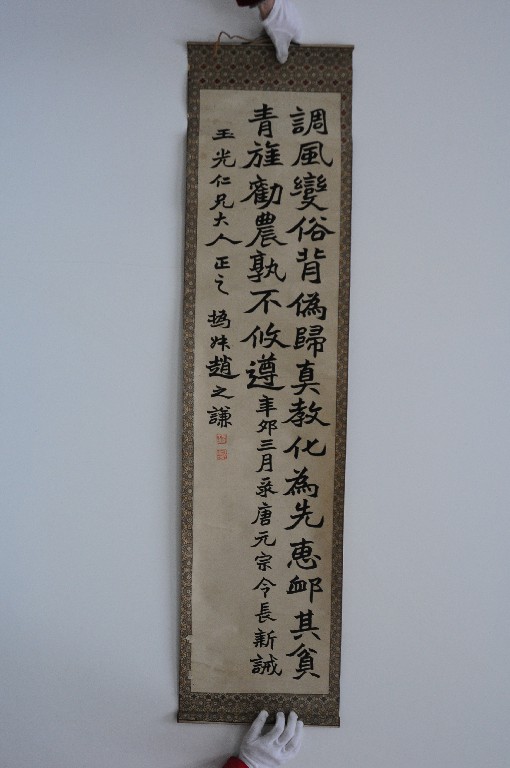 調風變俗背偽歸真教化為先惠卹其貧
青旌勸農孰不攸遵 卯三月录唐元宗令長新誡
玉光仁兄大人正之 撝叔趙之謙